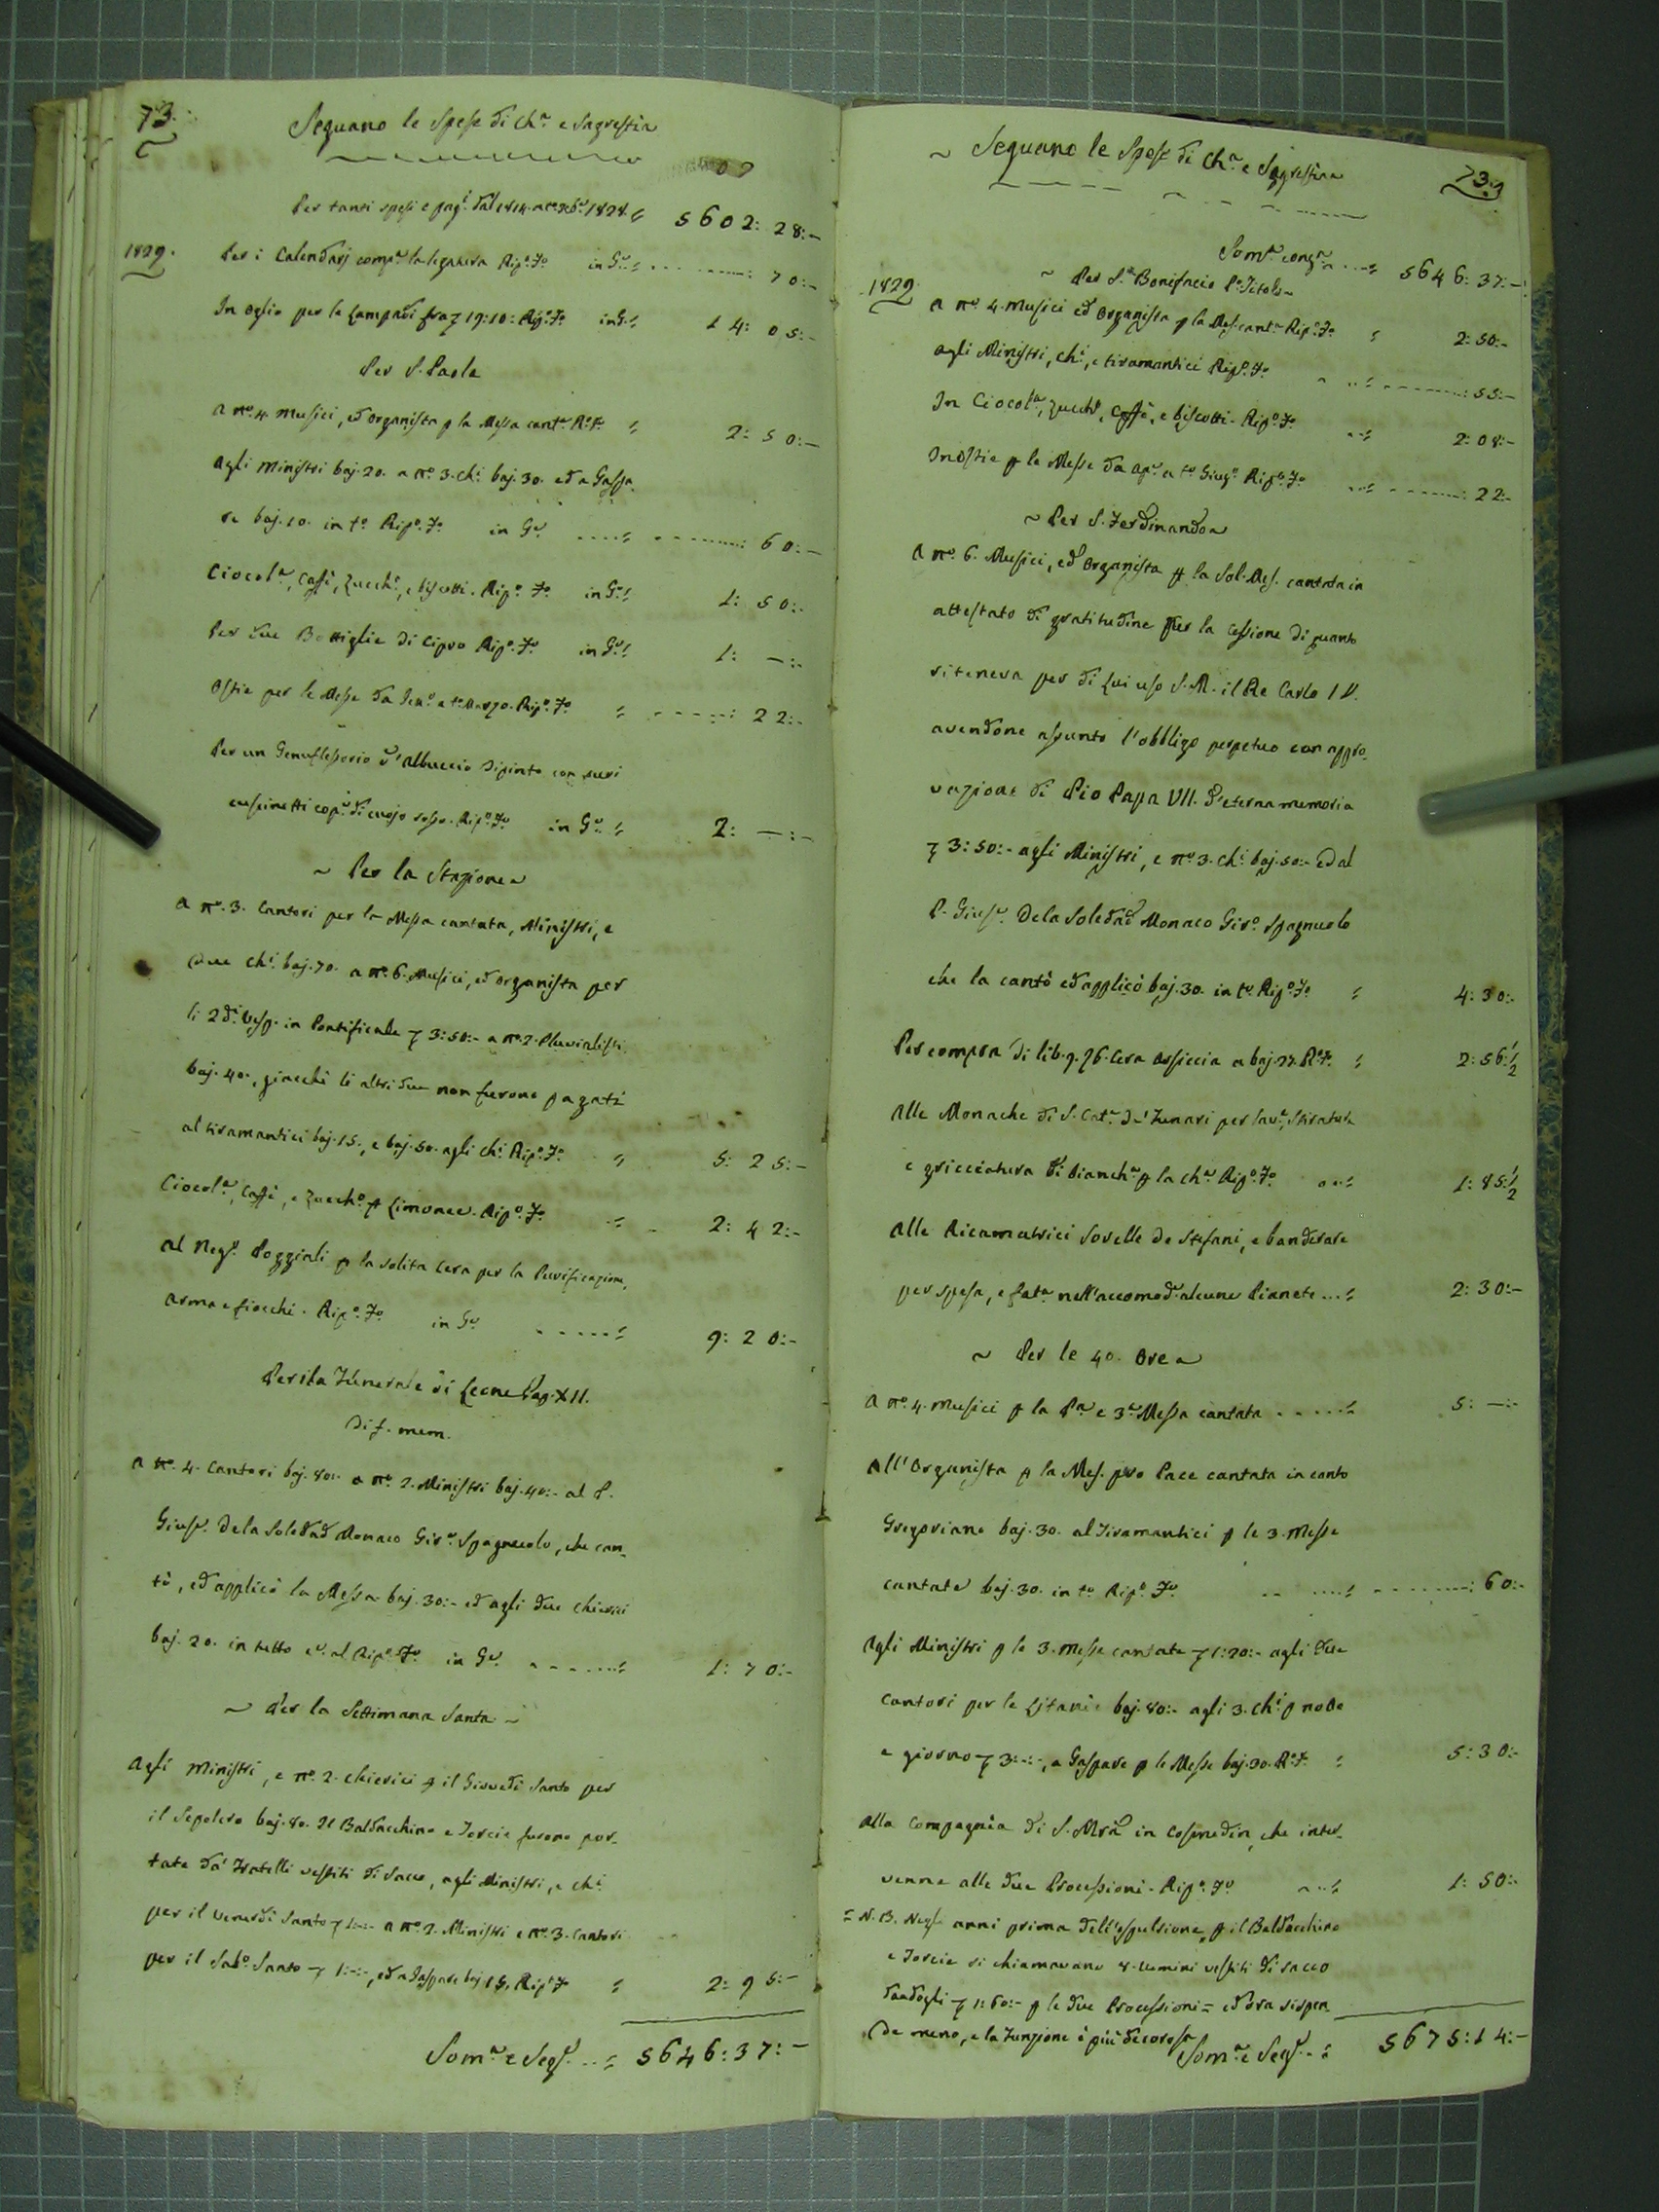 73.
Seguano le Spese di Ch.a e Sagrestia
Per tanti spesi e pag.i dal 1814. a tto Xbre 1828. = 5602: 28:-
1829. Per i Calendarj comp.a la legatura Rip.o J.o in G.o = 70:-
In oglio per le Lampadi fra 19:10: Rip.o J.o in G.o = 14: 05:-
Per S. Paola
A n.o 4. Musici, ed Organista p la Messa cant.a R.o J.o = 2: 50:-
Agli Ministri baj. 20. a n.o 3. Ch.i baj. 30. ed a Gaspa
re baj. 10. in t.o Rip.o J.o in G.o = 60:-
Ciocol.a, Caffè, Zucch.o, e biscotti. Rip.o J.o in G.o = 1: 50:-
Per due Bottiglie di Cipro Rip.o J.o in G.o = 1: -:-
Ostie per le Messe da Gen.o a t.o Marzo. Rip.o J.o = 22:-
Per un Genuflessorio d'Albuccio dipinto con suoi
cuscinetti cop.i di cuojo rosso. Rip.o J.o in G.o = 2: -:-
~ Per la Stazione ~
A n.o 3. Cantori per la Messa cantata, Ministri, e
due Ch.i baj. 70. a n.o 6. Musici, ed Organista per
li 2.di Vesp. in Pontificale 3:50:- a n.o 2. Pluvialisti
baj. 40., giacchè li altri due non furono pagati
al tiramantici baj. 15., e baj. 50. agli Ch.i Rip.o J.o = 5: 25:-
Ciocol.a, Caffè, e Zucch.o p Limonee. Rip.o J.o = 2: 42:-
Al Neg.e Poggiali p la solita Cera per la Purificazione,
arma e fiocchi. Rip.o J.o in G.o = 9: 20:-
Per il Funerale di Leone Pap. XII.
Di f. mem.
A n.o 4. Cantori baj. 80:- a n.o 2. Ministri baj. 40:- al P.
Gius.e Dela Soledad Monaco Gir.o Spagnuolo, che can-
tò, ed applicò la Messa baj. 30:- ed agli due Chierici
baj. 20. in tutto c.e al Rip.o J.o in G.o = 1: 70:-
~ Per la Settimana Santa ~
Agli Ministri, e n.o 2. Chierici p il Giovedì Santo per
il Sepolcro baj. 80. Il Baldacchino e Torcie furono por-
tate da' Fratelli vestiti di Sacco, agli Ministri, e Ch.i
per il Venerdì Santo 1:-:- a n.o 2. Ministri e n.o 3. Cantori
per il Sab.o Santo 1:-:-, ed a Gaspare baj 15. Rip.o J.o = 2: 95:-
Som.a e Seg.e = 5646:37:-
~ Seguano le Spese di Ch.a e Sagrestia
73.
Som.a e ... = 5646: 37:-
1829. ~ Per S. Bonifacio P.o Titol.e
A n.o 4. Musici ed Organista p la Mes. cant.a Rip.o J.o = 2: 50:-
Agli Ministri, Ch.i, e tiramantici Rip.o J.o = 55:-
In Ciocol.a, Zucch.o, Caffè, e biscotti. Rip.o J.o = 2: 08:-
In Ostie p le Messe da Ap.e a t.o Giug.o Rip.o J.o = 22:-
~ Per S. Ferdinando
A n.o 6. Musici, ed Organista p la Sol. Mes. cantata in
attestato di gratitudine per la Cessione di quanto
riteneva per di Lui uso S. M. il Re Carlo IV.
avendone assunto l'obbligo perpetuo con appro-
vazione di Pio Papa VII. d'eterna memoria
3:50:- agli Ministri, e n.o 3. Ch.i baj. 50:- ed al
P. Gius.e Dela Soledad Monaco Gir.o Spagnuolo
che la cantò ed applicò baj. 30. in t.o Rip.o J.o = 4: 30:-
Per compra di lib. 9. 76. Cera arsiccia a baj. 27. R.o J.o = 2: 56:1/2
Alle Monache di S. Cat.a de' Funari per lav.a, Stiratura
e gricciatura di bianch.a p la Ch.a Rip.o J.o = 1: 85:1/2
Alle Ricamatrici Sorelle De Stefani, e bandierare
per spesa, e fat.a nell'accomod.e alcune Pianete = 2: 30:-
~ Per le 40. Ore ~
A n.o 4. Musici p la P.a e 3.a Messa cantata = 5: -:-
All'Organista p la Mes. pro Pace cantata in canto
Gregoriano baj. 30. al Tiramantici p le 3. Messe
cantate baj. 30. in t.o Rip.o J.o = 60:-
Agli Ministri p le 3. Messe cantate 1:20:- agli due
Cantori per le Litanie baj. 80:- agli 3. Ch.i p notte
e giorno 3:-:-, a Gaspare p le Messe baj. 30. R.o J.o = 5:30:-
Alla Compagnia di S. Mrã in Cosmedin, che inter-
venne alle due Processioni. Rip.o J.o = 1: 50:-
= N. B. Negli anni prima dell'espulsione, p il Baldacchino
e Torcie si chiamavano 8. Uomini vestiti di sacco
dandogli 1:60:- p le due Processioni = ed ora si spen
de meno, e la Funzione è più decorosa
Som.a e Seg.e = 5675:14:-